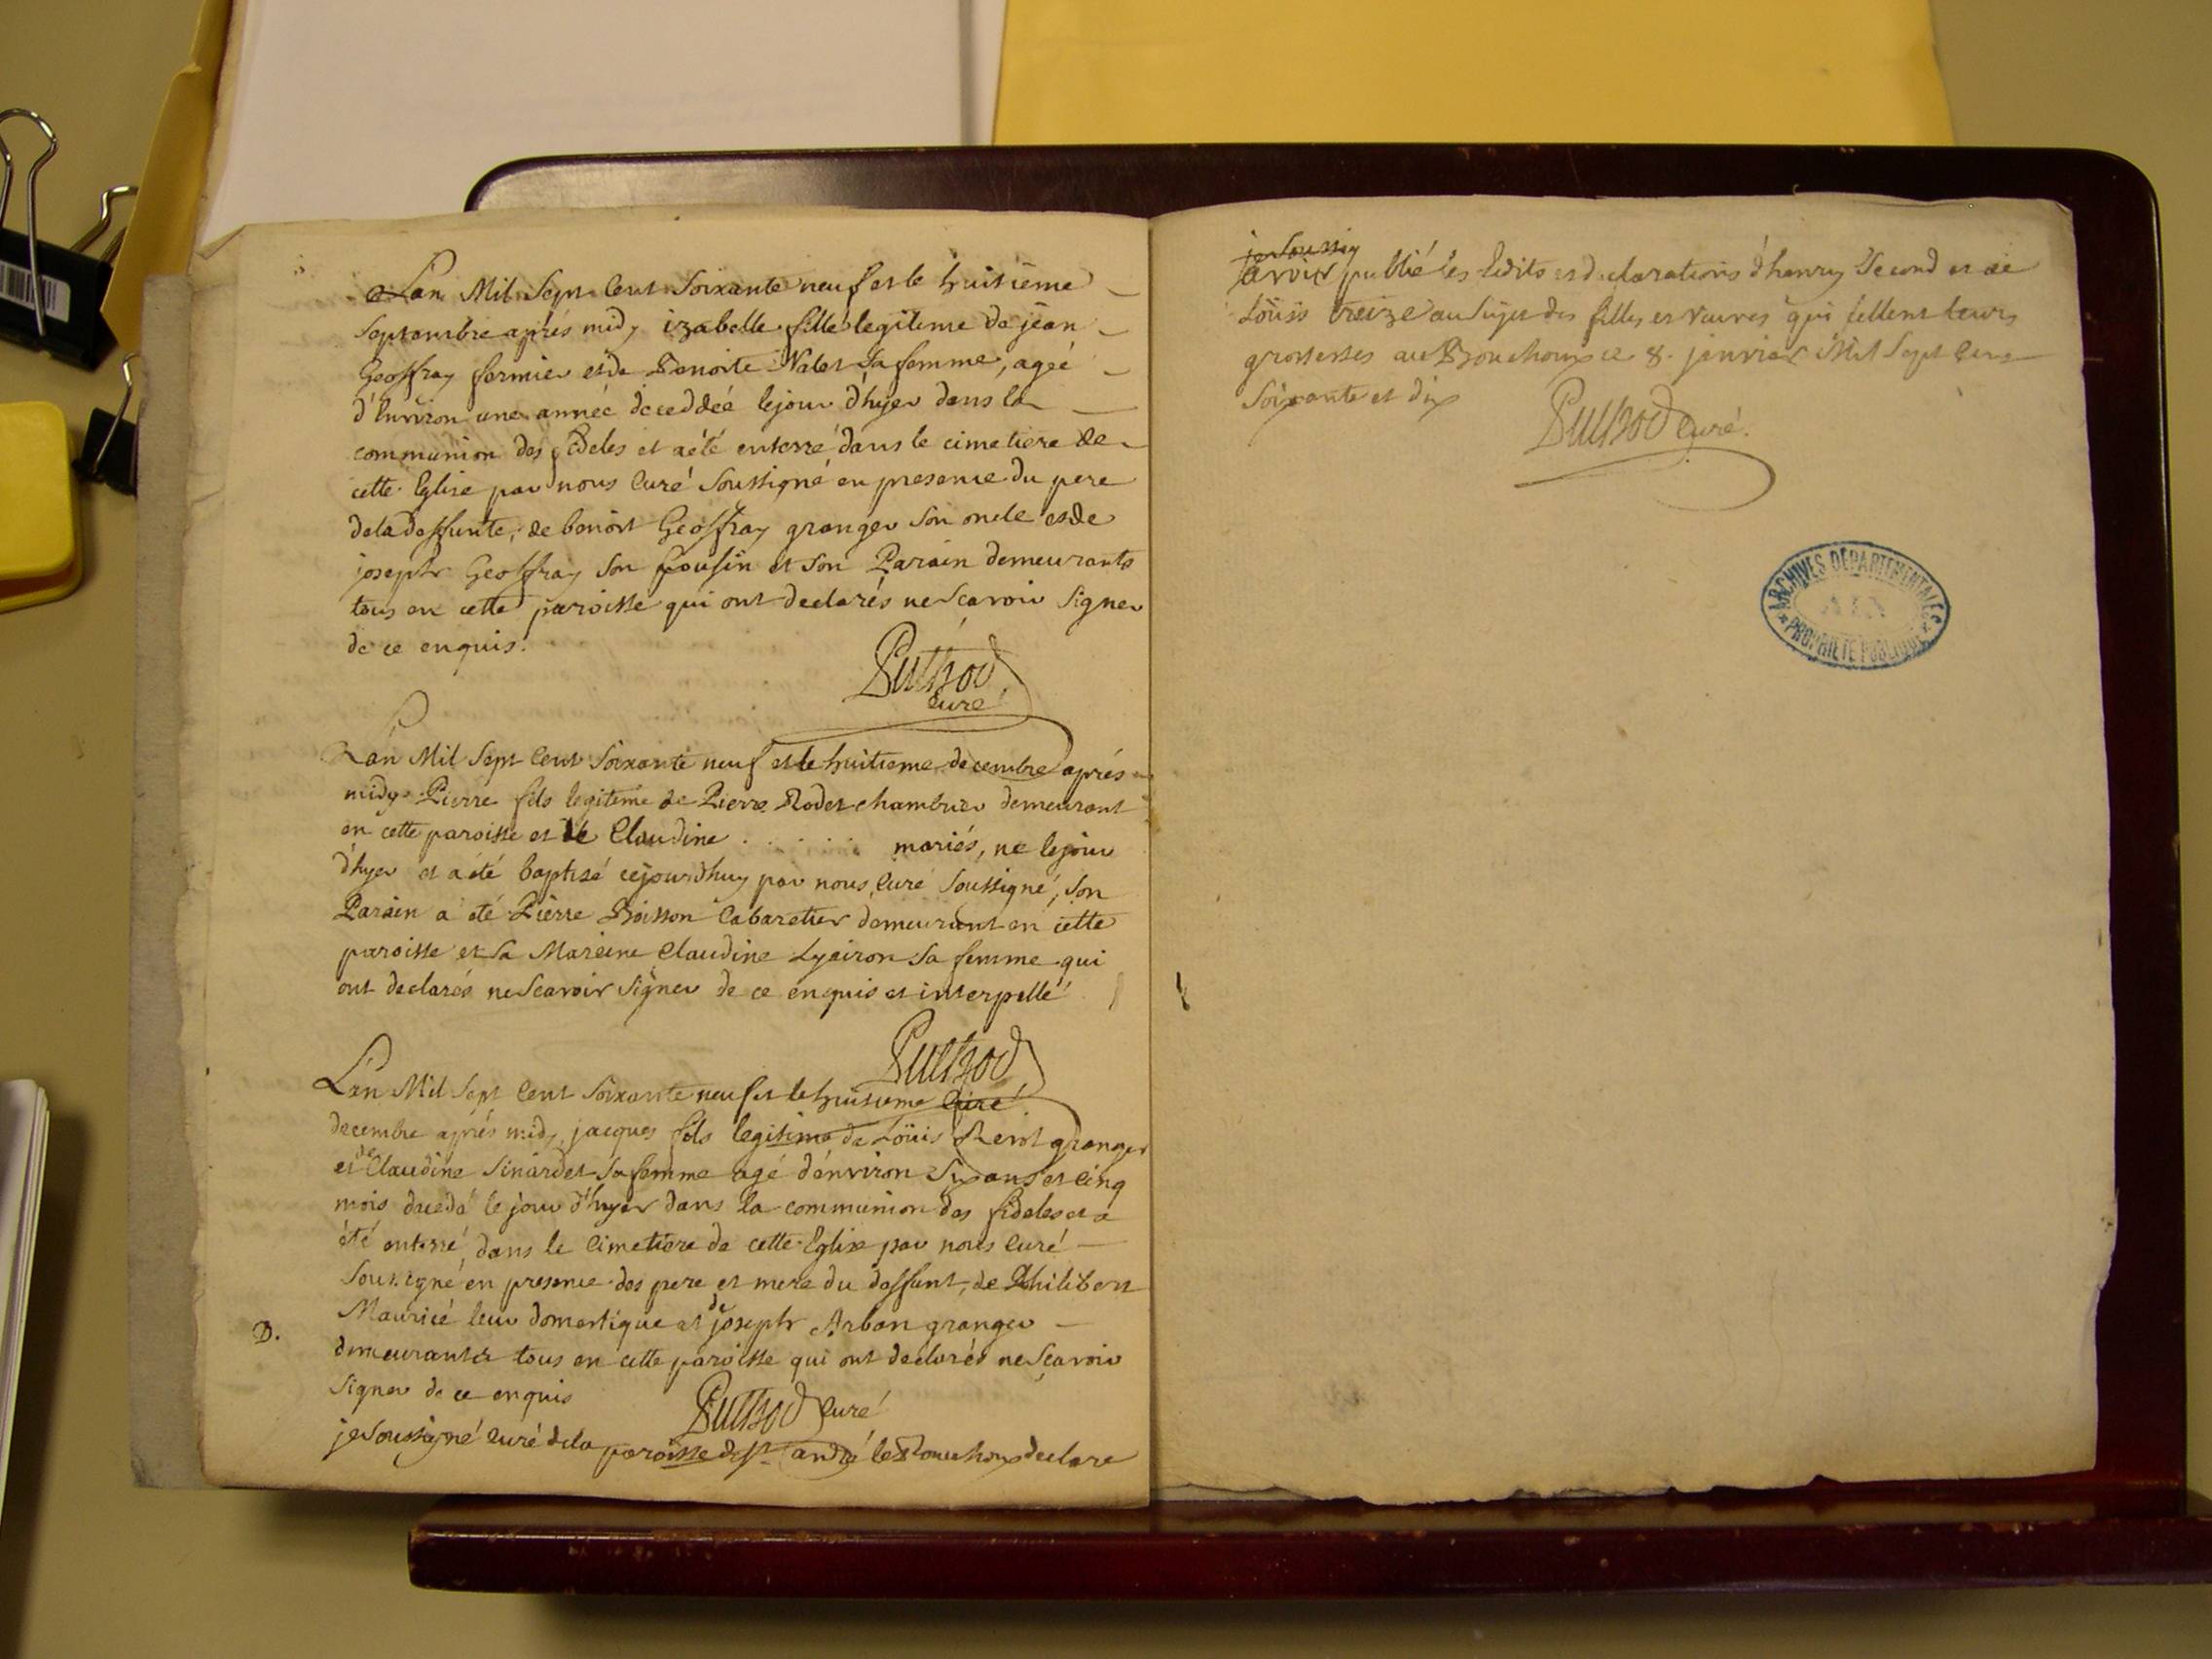 Lan Mil Sept Cent Soixante neuf et le huitieme
Septembre aprés midy izabelle fille legiteme de jean
Geoffray fermier et de Benoite Nalet Sa femme, ageé
d'Environ une année deceddéé le jour d'hyer dans la
communion des fideles et a été enterré dans le cimetiere de
cette Eglise par nous Curé Soussigné en presence du pere
dela deffunte, de benoit Geoffray granger Son oncle et de
joseph Geoffray Son Cousin et Son Parain demeurants
tous en cette paroisse qui ont declarés ne Scavoir Signer
de ce enquis.
Puthod
Curé
Lan Mil Sept Cent Soixante neuf et le huitieme decembre aprés
midy Pierre fils legiteme de Pierre Rodet chambrier demeurant
en cette paroisse et de Claudine . . . . . . mariés, ne le jour
d'hyer et a été baptisé cejourdhuy par nous Curé Soussigné, Son
Parain a été Pierre Boisson Cabaretier demeurant en cette
paroisse et Sa Mareine Claudine Sa femme qui
ont declarés ne Scavoir Signer de ce enquis et interpellé
Puthod
Curé
Lan Mil Sept Cent Soixante neuf et le huitieme
decembre aprés midy jacques fils legitime de Loüis granger
et de Claudine Sinardet Sa femme agé d'environ Six ans et Cinq
mois decedé le jour d'hyer dans la communion des fideles et a
été enterré dans le Cimetiere de cette Eglise par nous Curé
Soussigné en presence des pere et mere du deffunt, de Philibert
Maurice leur domestique et de joseph Arban granger
D.
demeurants tous en cette paroisse qui ont declarés ne Scavoir
Signer de ce enquis
Puthod Curé
je Soussigné Curé dela paroisse de St andré le Bouchoux declare
je Soussig
avoir publié les Edits et declarations d'henry Second et de
Loüis treize au Sujet des filles et veuves qui Cellent leurs
grossesses au Bouchoux ce 8. janvier Mil Sept Cent
Soixante et dix
Puthod Curé.
ARCHIVES DÉPARTEMENTALES
AIN
PROPRIÉTÉ PUBLIQUE